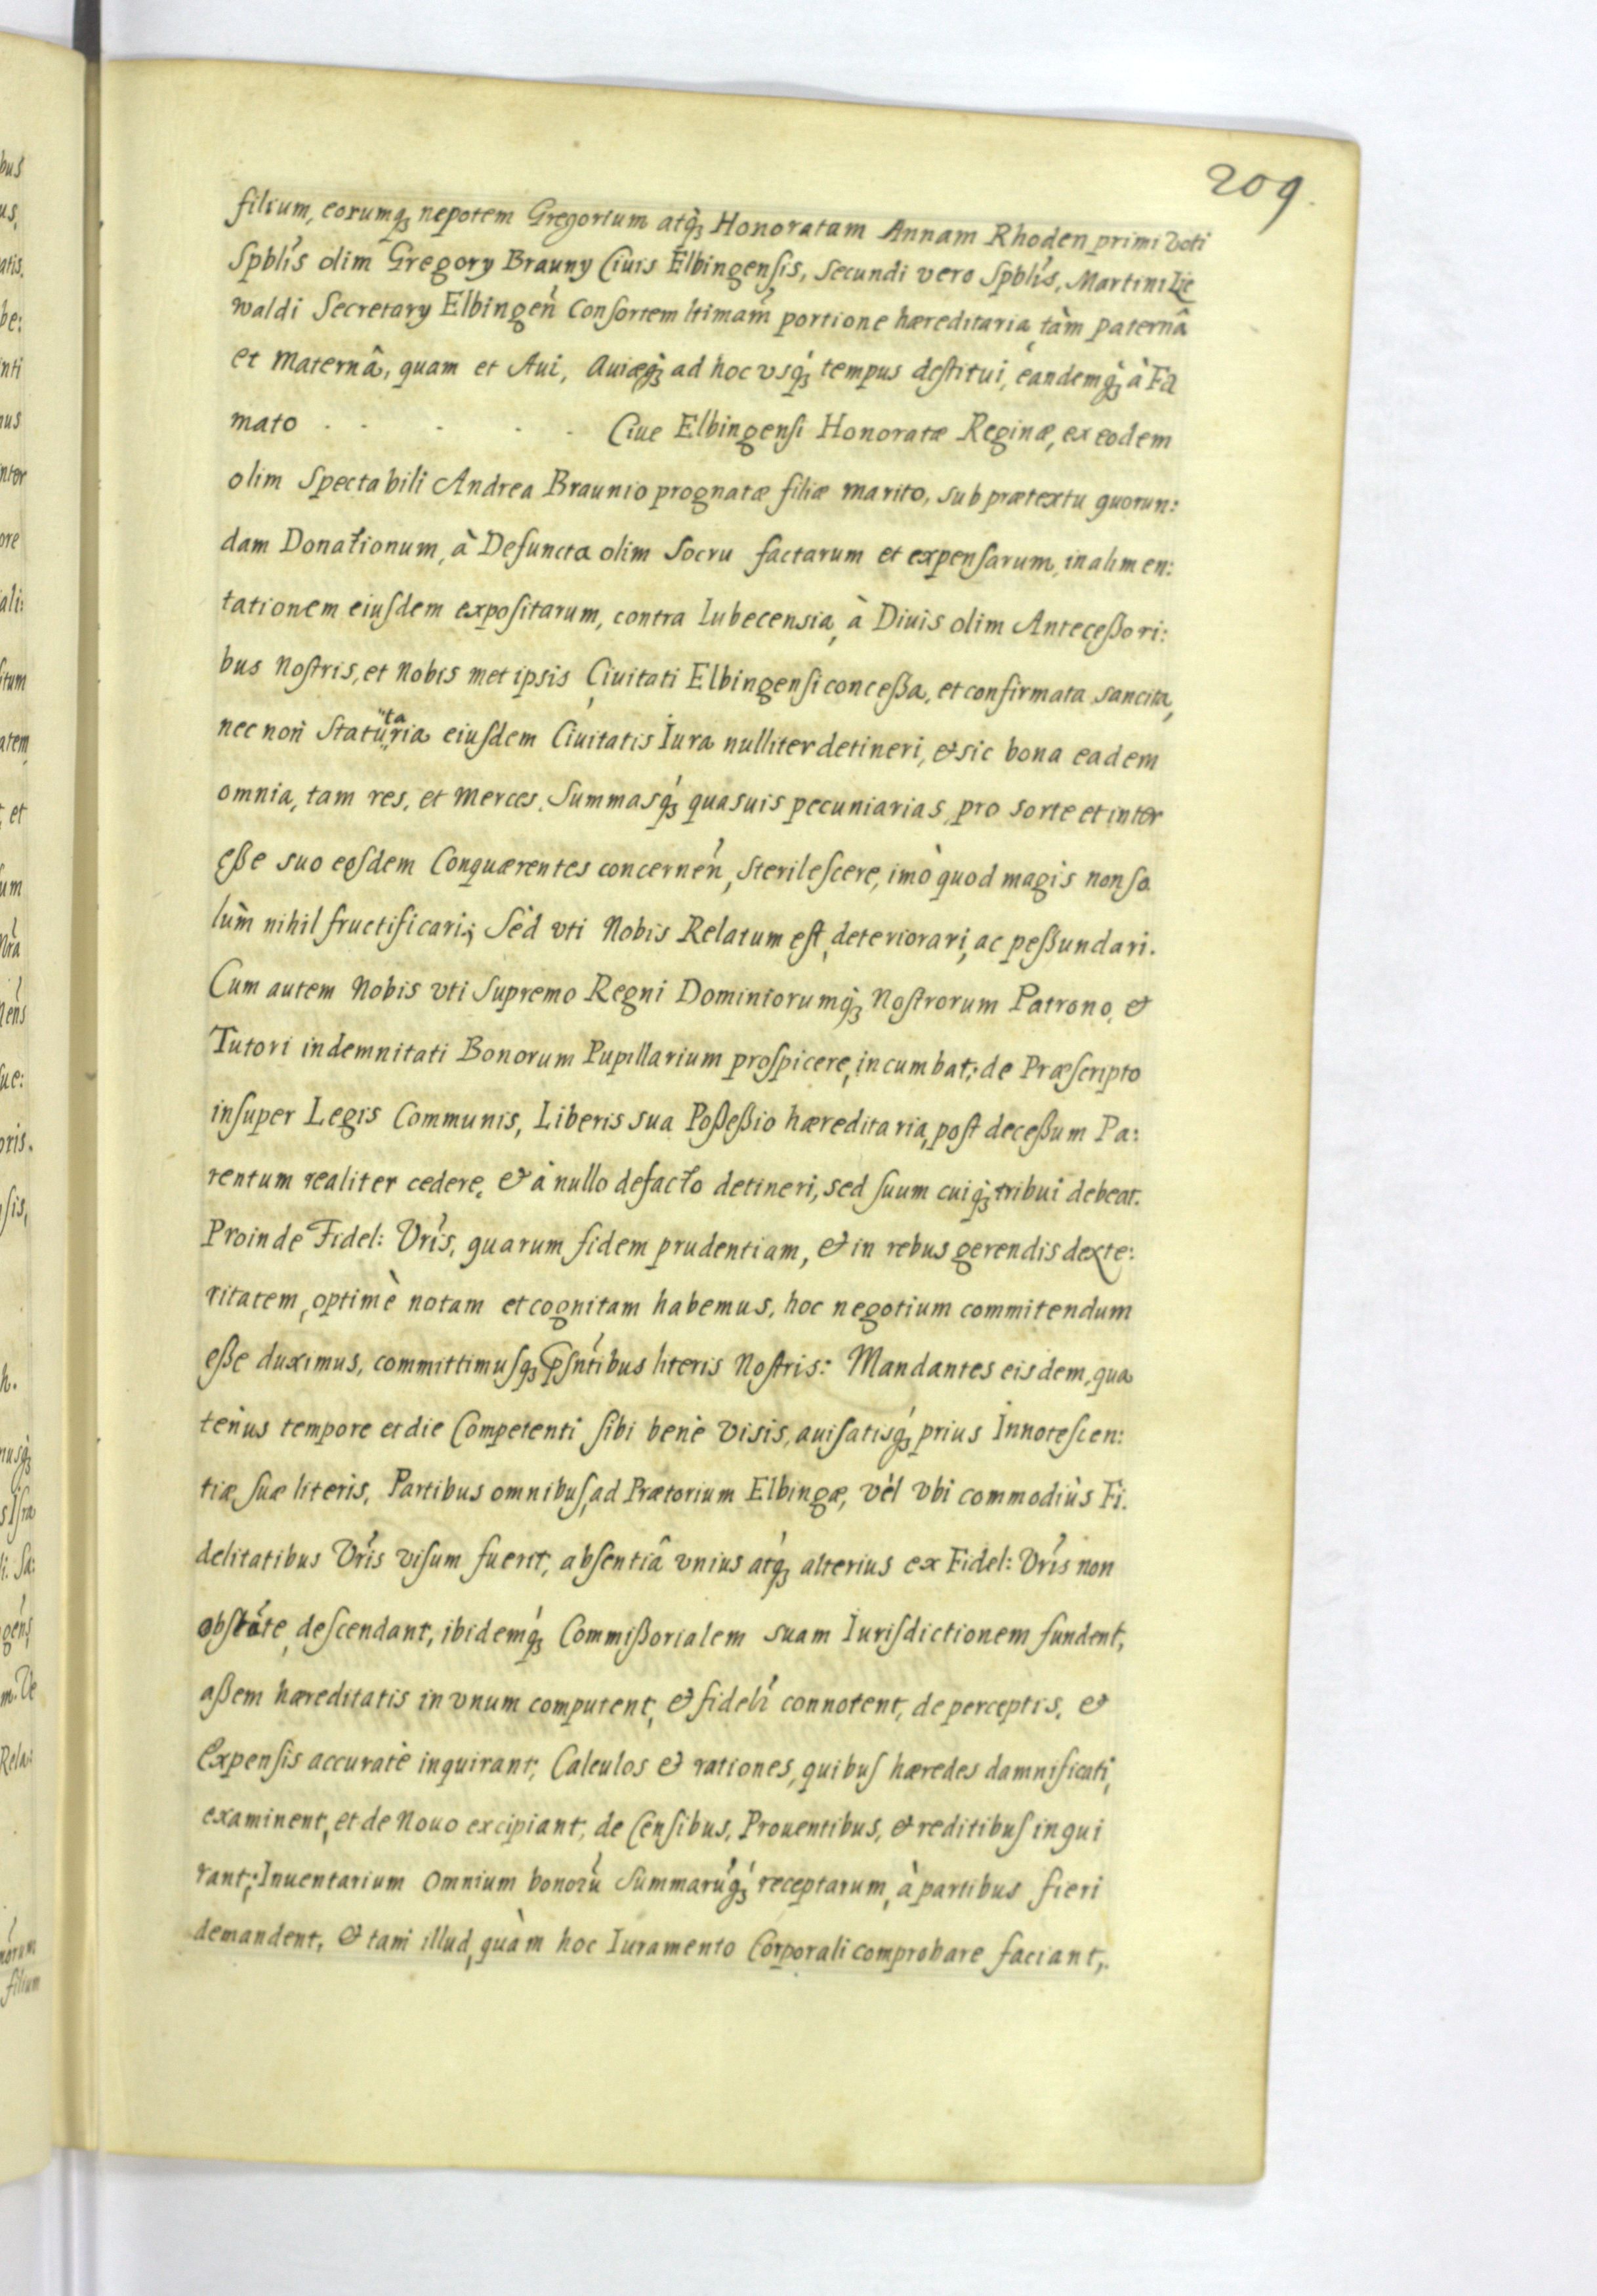 209.
filium, eorumq́ꝫ nepotem Gregorium atq́ꝫ Honoratam Annam Rhoden primi voti
Spblis olim Gregory Brauny Ciuis Elbingensis, Secundi vero Spblis, Martini Lie
waldi Secretary Elbingen̄ Consortem ltimam̄ portione hæreditaria, tàm paternâ
et Maternâ, quam et Aui, Auiæq́ꝫ ad hoc vsq́ꝫ tempus destitui, eandemq́ꝫ à Fa
mato . . . . . Ciue Elbingensi Honoratæ Reginæ, ex eodem
olim Spectabili Andrea Braunio prognatæ filiæ marito, sub prætextu quorun:
dam Donationum, à Defuncta olim Socru factarum et expensarum, in alimen:
tationem eiusdem expositarum, contra Iubecensia, à Diuis olim Anteceßori:
bus Nostris, et Nobis met ipsis Ciuitati Elbingensi conceßa, et confirmata sancita,
nec non Statutaria eiusdem Ciuitatis Iura nulliter detineri, & sic bona eadem
omnia, tam res, et Merces, Summasq́ꝫ quasuis pecuniarias, pro sorte et inter
eße suo eosdem Conquærentes concernen̄, sterilescere, imò quod magis non so
lùm nihil fructificari; Sed vti Nobis Relatum est, deteriorari, ac peßundari.
Cum autem Nobis vti Supremo Regni Dominiorumq́ꝫ Nostrorum Patrono, &
Tutori indemnitati Bonorum Pupillarium prospicere, incumbat; de Præscripto
insuper Legis Communis, Liberis sua Poßeßio hæreditaria, post deceßum Pa:
rentum realiter cedere, & à nullo defacto detineri, sed suum cuiq́ꝫ tribui debeat.
Proinde Fidel: Vrīs, quarum fidem prudentiam, & in rebus gerendis dexte:
ritatem, optimè notam et cognitam habemus, hoc negotium commitendum
eße duximus, committimusq́ꝫ p̄sntibus literis Nostris: Mandantes eisdem, qua
tenus tempore et die Competenti sibi benè visis, auisatisq́ꝫ prius Innotescen:
tiæ suæ literis, Partibus omnibus, ad Prætorium Elbingæ, vèl vbi commodiùs Fi.
delitatibus Vrīs visum fuerit, absentiâ vnius atq́ꝫ alterius ex Fidel: Vrīs non
obstāte, descendant, ibidemq́ꝫ Commißorialem suam Iurisdictionem fundent,
aßem hæreditatis in vnum computent, & fidelr̄ connotent, de perceptis, &
Expensis accuratè inquirant, Calculos & rationes, quibus hæredes damnificati,
examinent, et de Nouo excipiant, de Censibus, Prouentibus, & reditibus inqui
rant; Inuentarium Omnium bonorū Summarūq́ꝫ receptarum, à partibus fieri
demandent, & tam illud, quàm hoc Iuramento Corporali comprobare faciant,.